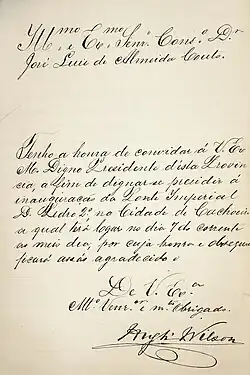 Illmo. e Exmo. Senr. Consº. Dr.
José Luiz de Almeida Couto.
Tenho a honra de convidar á V. Ex
M. Digno Presidente d'ista Provin
cia, a fim de dignar-se presidir á
inauguração da Ponte Imperial
D. Pedro 2º. na Cidade de Cachoeira
a qual terá logar no dia 7 do corrente
ao meio dia; por cuja honra e obsequio
ficará assás agradecido o
De V. Exa.
Mº. Venr. e mto. obrigado.
Hugh Wilson